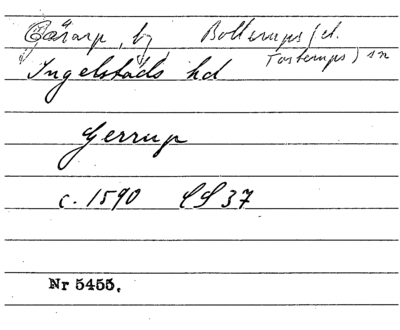 Gärarp, by, Bollerups (el.
Tosterups) sn
Ingelstads hd
Gerrup
c. 1590 SS 37
Nr 5455.